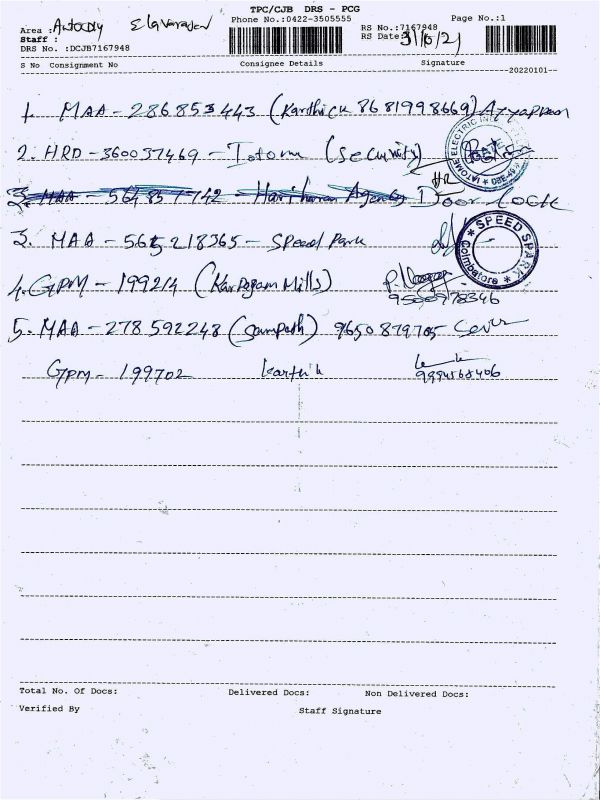 TPC/CJB DRS - PCG
Area : Elavarasan
Phone No.:0422-3505555
RS No.:7167948
Page No.:1
Staff :
RS Date
DRS No. :DCJB7167948
S No Consignment No Consignee Details Signature
20220101
1. MAA - 286853443 (Karthick 8681998669) Ayyappan
2. HRD - 360037469 - (Security)
HR
3. MAA - 564857742 - Hariharan Agency Door Lock
3. MAA - 565218365 - Speed Park
* SPEED SPARK * Coimbatore
4. GPM - 199214 (Karpagam Mills)
9500978346
5. MAA - 278592248 (Sampath) 9650879705
GPM - 199702 Karthik
9994568406
Total No. Of Docs: Delivered Docs: Non Delivered Docs:
Verified By Staff Signature